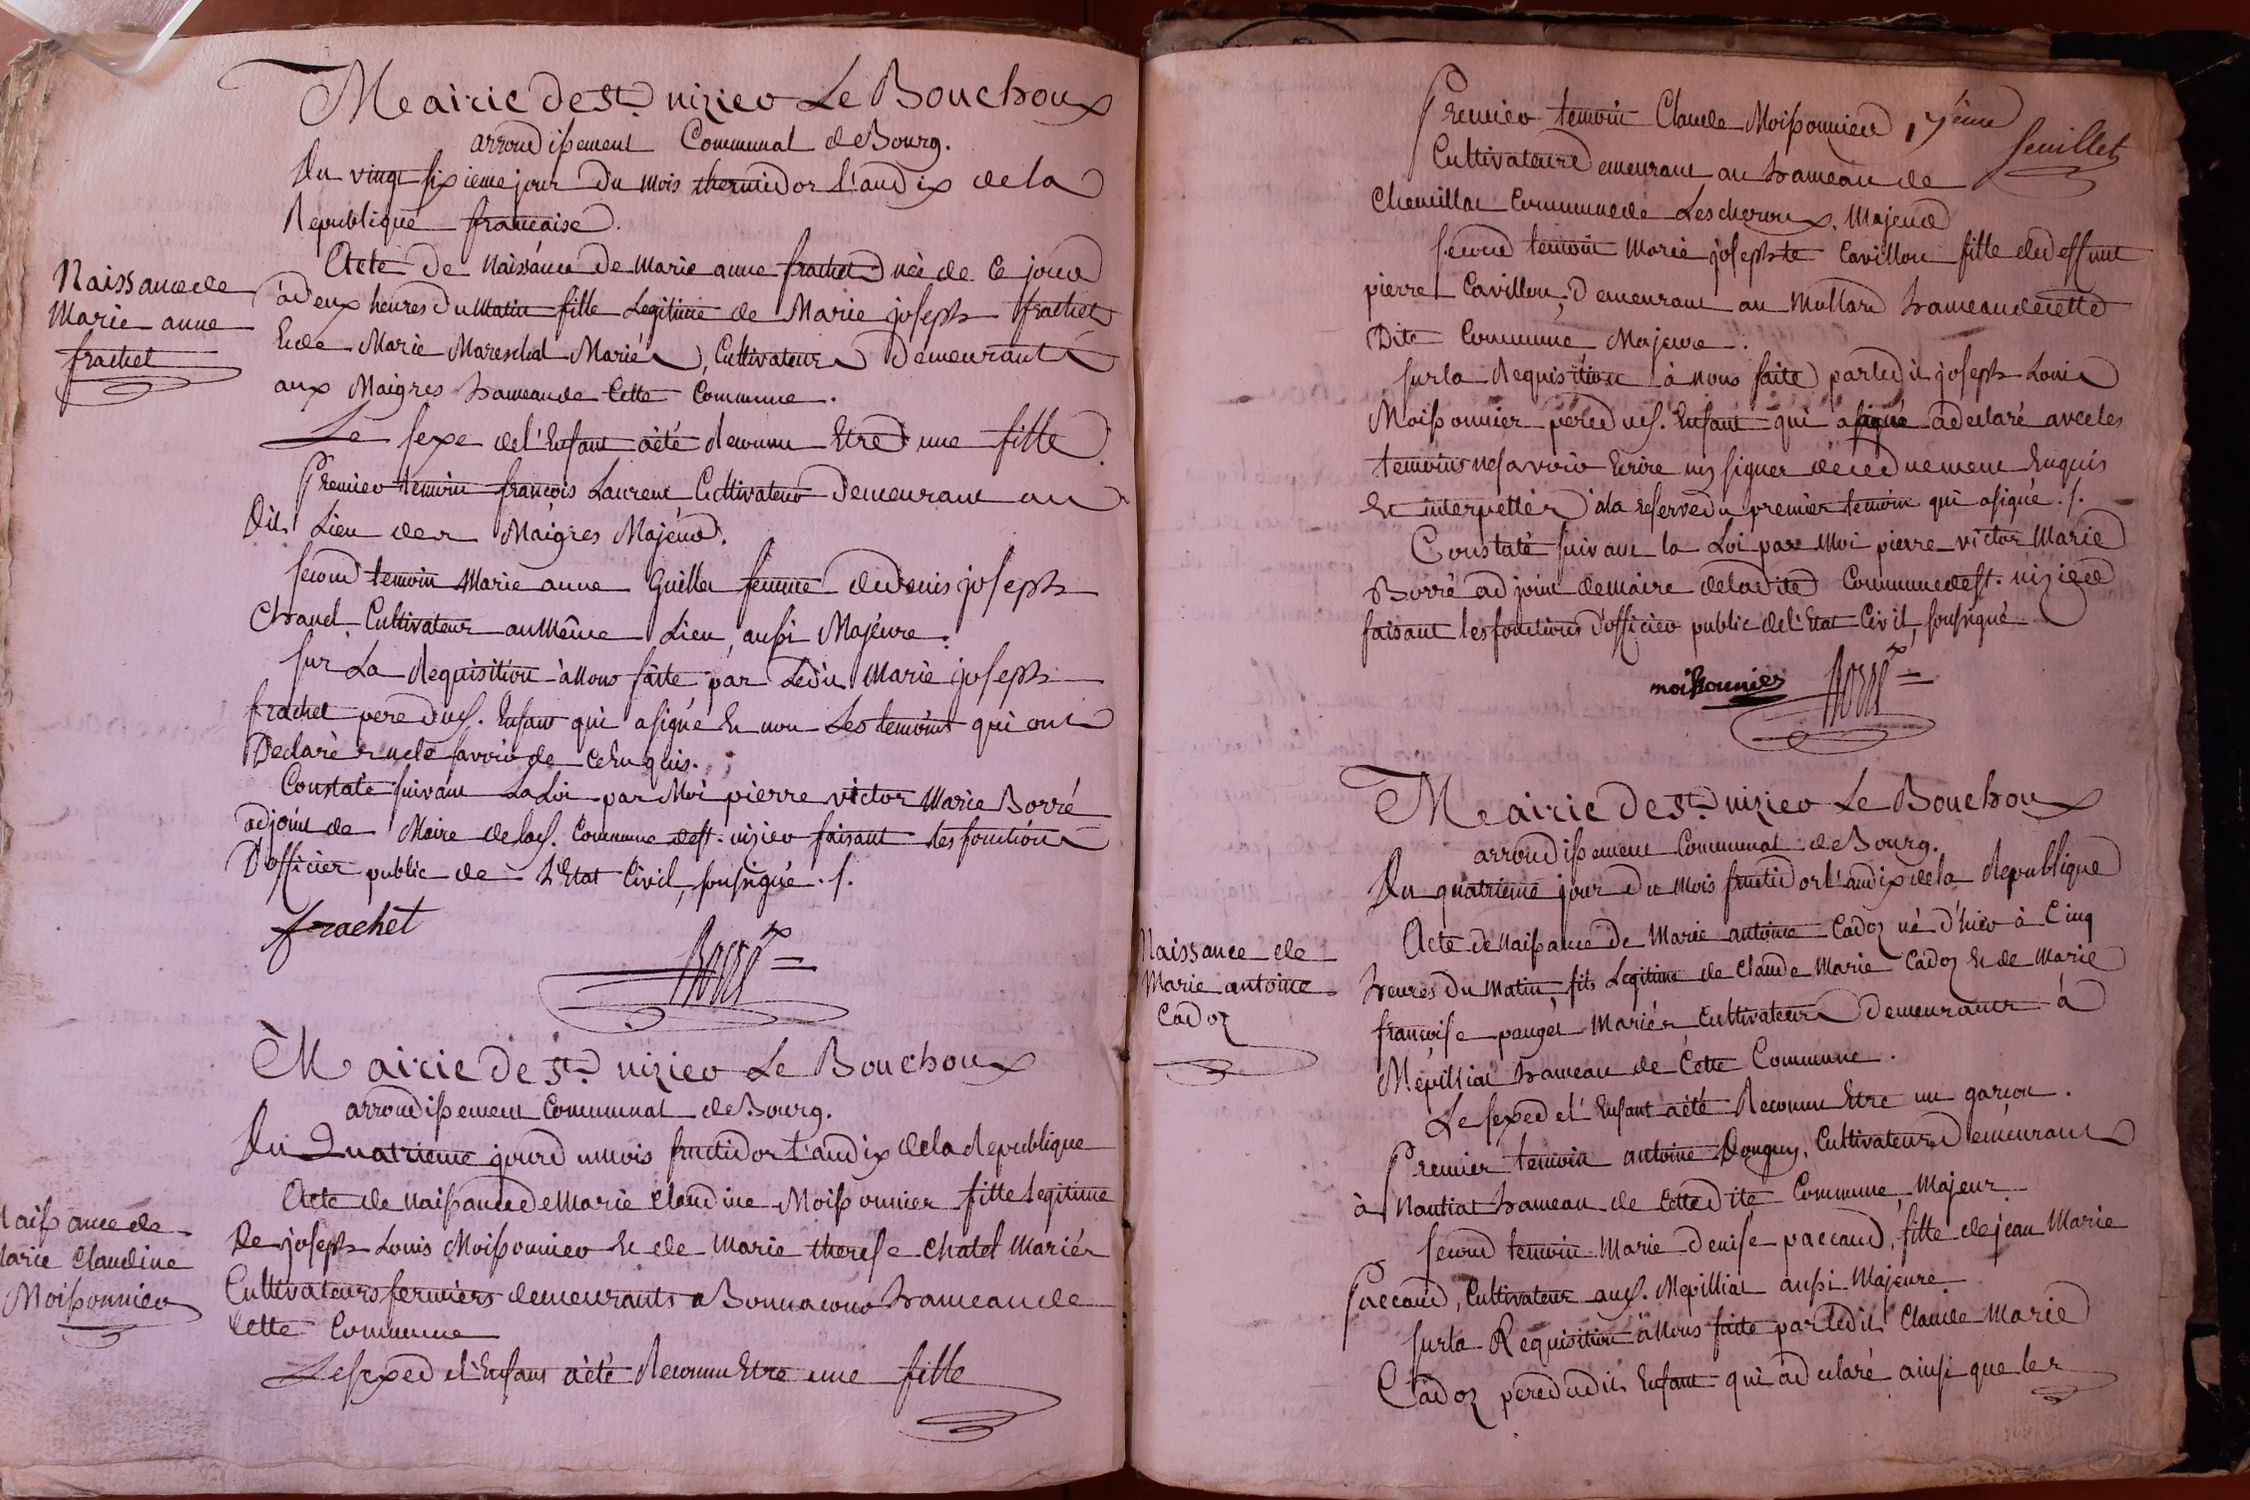 Mairie de St. nizier Le Bouchoux
arrondissement Communal de Bourg.
Du vingt sixieme jour du mois thermidor l'an dix de la
Republique française.
Naissance de
Marie anne
frachet
Acte de Naissance de Marie anne frachet née de ce jour
à deux heures du Matin fille Legitime de Marie joseph frachet
Et de Marie Mareschal Mariés, Cultivateurs Demeurant
aux Maigres hameau de Cette Commune.
Le sexe de l'Enfant a été reconnu Etre une fille.
Premier temoin françois Laurent Cultivateur Demeurant au
Dit Lieu des Maigres Majeur.
second temoin Marie anne Guillet femme de denis joseph
Chanel Cultivateur au Même Lieu, aussi Majeure.
sur La Requisition à Nous faite par Ledit Marie joseph
frachet pere dud. Enfant qui a signé Et non Les temoins qui ont
Declaré ne le savoir de ce Enquis.
Constaté suivant La Loi par Moi pierre victor Marie Borré
adjoint de Maire de lad. Commune de st. nizier faisant les fonctions
D'officier public de L'Etat Civil, soussigné ./.
frachet
Borré
Mairie de St. nizier Le Bouchoux
arrondissement Communal de Bourg.
Du Quatrieme jour du mois fructidor l'an dix de la Republique
Naissance de
Marie Claudine
Moissonnier
Acte de Naissance de Marie Claudine Moissonnier fille legitime
De joseph Louis Moissonnier Et de Marie therese Chatel Mariés
Cultivateurs fermiers demeurants a Bonnacour hameau de
Cette Commune
Le sexe de l'Enfant a été Reconnu Etre une fille
17eme
feuillet
Premier temoin Claude Moissonnier,
Cultivateur Demeurant au hameau de
Chevillat Commune de Lescheroux, Majeur
second temoin Marie josephte Cavillon fille de deffunt
pierre Cavillon, Demeurant au Mollard hameau de cette
Dite Commune Majeure.
sur la Requisition à nous faite par ledit joseph Louis
Moissonnier pere dud. Enfant qui a signé a declaré avec les
temoins ne savoir Ecrire ny signer de ce duement Enquis
Et interpellés à la reserve du premier temoin qui a signé ./.
Constaté suivant la Loi par Moi pierre victor Marie
Borré adjoint de Maire de ladite Commune de st. nizier
faisant les fonctions d'officier public de l'Etat Civil, soussigné
moissonnier
Borré
Mairie de St. nizier Le Bouchoux
arrondissement Communal de Bourg.
Du quatrieme jour du Mois fructidor l'an dix de la Republique
Naissance de
Marie antoine
Cadoz
Acte de Naissance de Marie antoine Cadoz né d'hier à Cinq
heures du Matin, fils Legitime de Claude Marie Cadoz Et de Marie
françoise pauget Mariés Cultivateurs Demeurant à
Mépilliat hameau de Cette Commune.
Le sexe de l'Enfant a été Reconnu Etre un garçon.
Premier temoin antoine Donguy, Cultivateur Demeurant
à Nantiat hameau de Cette Dite Commune, Majeur
second temoin Marie Denise paccaud, fille de jean Marie
Paccaud, Cultivateur aud. Mepilliat aussi Majeure
sur la Requisition à Nous faite par ledit Claude Marie
Cadoz pere dudit Enfant qui a declaré ainsi que les